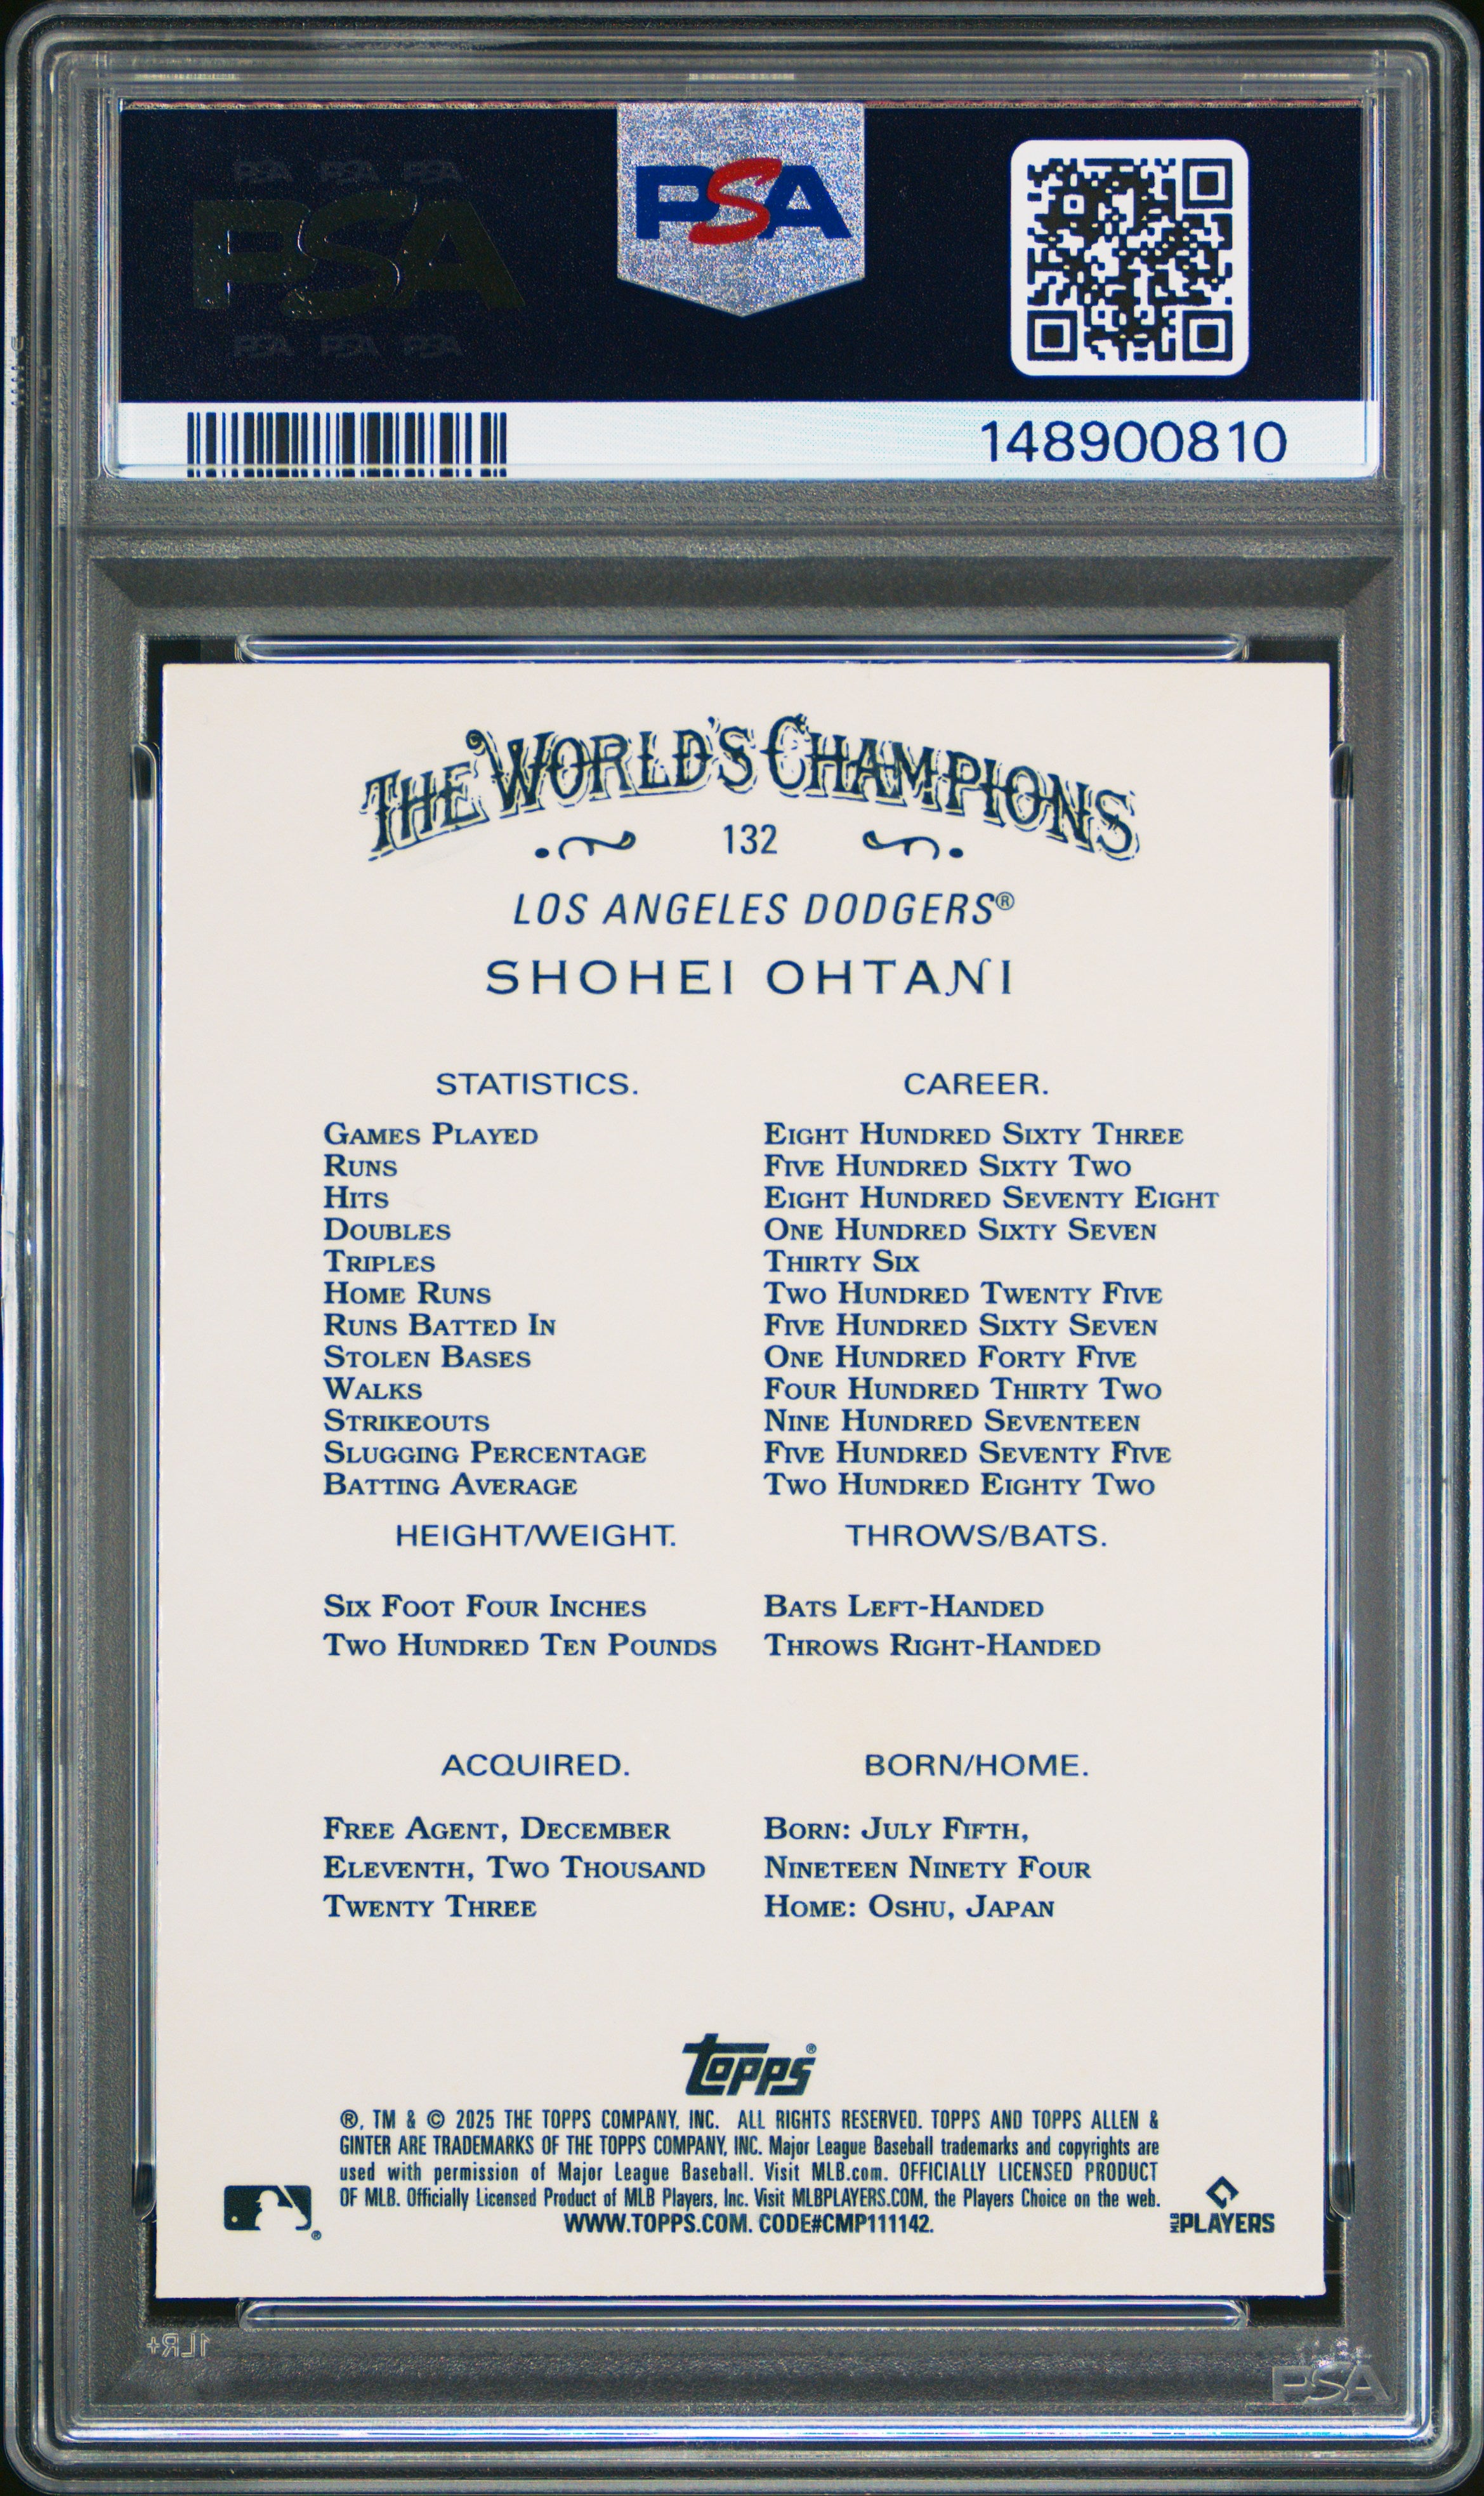 PSA PSA PSA
PSA
PSA PSA PSA
PSA
148900810
THE WORLD'S CHAMPIONS
132
LOS ANGELES DODGERS®
SHOHEI OHTANI
STATISTICS. CAREER.
GAMES PLAYED EIGHT HUNDRED SIXTY THREE
RUNS FIVE HUNDRED SIXTY TWO
HITS EIGHT HUNDRED SEVENTY EIGHT
DOUBLES ONE HUNDRED SIXTY SEVEN
TRIPLES THIRTY SIX
HOME RUNS TWO HUNDRED TWENTY FIVE
RUNS BATTED IN FIVE HUNDRED SIXTY SEVEN
STOLEN BASES ONE HUNDRED FORTY FIVE
WALKS FOUR HUNDRED THIRTY TWO
STRIKEOUTS NINE HUNDRED SEVENTEEN
SLUGGING PERCENTAGE FIVE HUNDRED SEVENTY FIVE
BATTING AVERAGE TWO HUNDRED EIGHTY TWO
HEIGHT/WEIGHT. THROWS/BATS.
SIX FOOT FOUR INCHES BATS LEFT-HANDED
TWO HUNDRED TEN POUNDS THROWS RIGHT-HANDED
ACQUIRED. BORN/HOME.
FREE AGENT, DECEMBER BORN: JULY FIFTH,
ELEVENTH, TWO THOUSAND NINETEEN NINETY FOUR
TWENTY THREE HOME: OSHU, JAPAN
topps®
®, TM & © 2025 THE TOPPS COMPANY, INC. ALL RIGHTS RESERVED. TOPPS AND TOPPS ALLEN &
GINTER ARE TRADEMARKS OF THE TOPPS COMPANY, INC. Major League Baseball trademarks and copyrights are
used with permission of Major League Baseball. Visit MLB.com. OFFICIALLY LICENSED PRODUCT
OF MLB. Officially Licensed Product of MLB Players, Inc. Visit MLBPLAYERS.COM, the Players Choice on the web.
WWW.TOPPS.COM. CODE#CMP111142.
MLB PLAYERS
1LR+
PSA